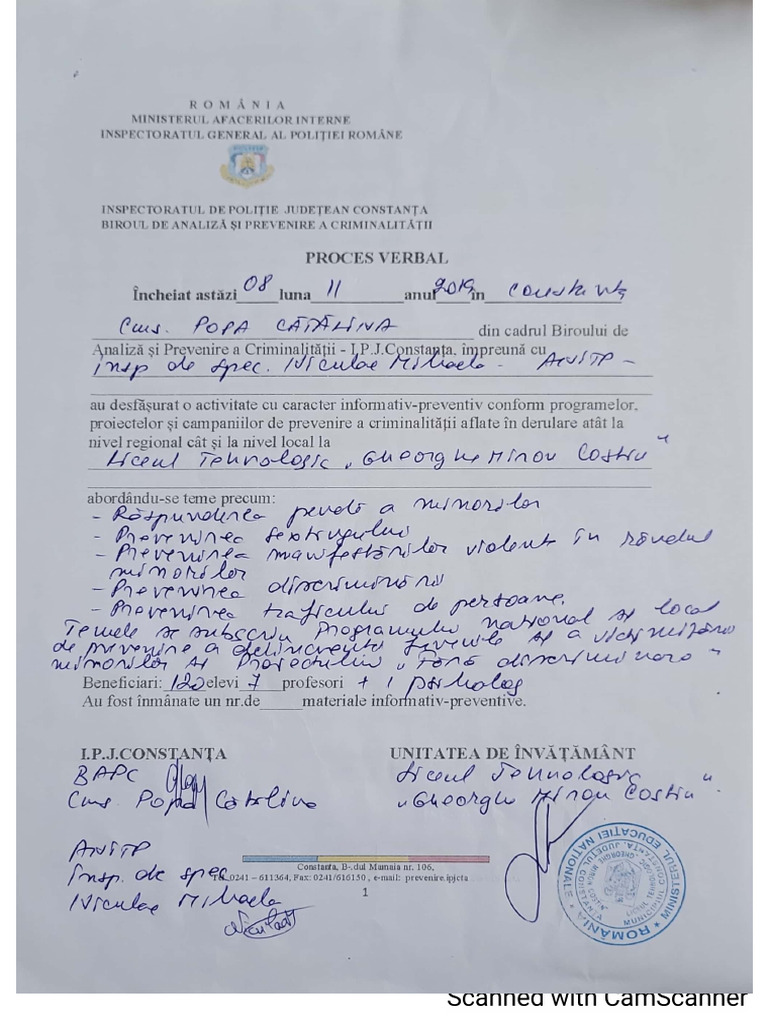 ROMÂNIA
MINISTERUL AFACERILOR INTERNE
INSPECTORATUL GENERAL AL POLIŢIEI ROMÂNE
INSPECTORATUL DE POLIŢIE JUDEŢEAN CONSTANŢA
BIROUL DE ANALIZĂ ŞI PREVENIRE A CRIMINALITĂŢII
PROCES VERBAL
Încheiat astăzi 08 luna 11 anul 2019 în Constanța
Cms. POPA CĂTĂLINA din cadrul Biroului de
Analiză şi Prevenire a Criminalităţii - I.P.J.Constanţa, împreună cu
insp de spec. Niculae Mihaela - ANITP -
au desfăşurat o activitate cu caracter informativ-preventiv conform programelor,
proiectelor şi campaniilor de prevenire a criminalităţii aflate în derulare atât la
nivel regional cât şi la nivel local la
Liceul Tehnologic „Gheorghe Miron Costin"
abordându-se teme precum:
- Răspunderea penală a minorilor
- Prevenirea sextingului
- Prevenirea manifestărilor violente în rândul
minorilor
- Prevenirea discriminării
- Prevenirea traficului de persoane.
Temele se subscriu Programului național și local
de prevenire a delincvenței juvenile și a victimizării
minorilor și Proiectului „Fără discriminare"
Beneficiari: 120 elevi 7 profesori + 1 psiholog
Au fost înmânate un nr.de materiale informativ-preventive.
I.P.J.CONSTANŢA
BAPC
Cms. Popa Cătălina
UNITATEA DE ÎNVĂŢĂMÂNT
Liceul Tehnologic
„Gheorghe Miron Costin"
ANITP
insp. de spec
Niculae Mihaela
Constanta, B-.dul Mamaia nr. 106,
Tel.0241 – 611364, Fax: 0241/616150 , e-mail: prevenire.ipjcta
1
ROMÂNIA * MINISTERUL EDUCAŢIEI NAŢIONALE *
Scanned with CamScanner